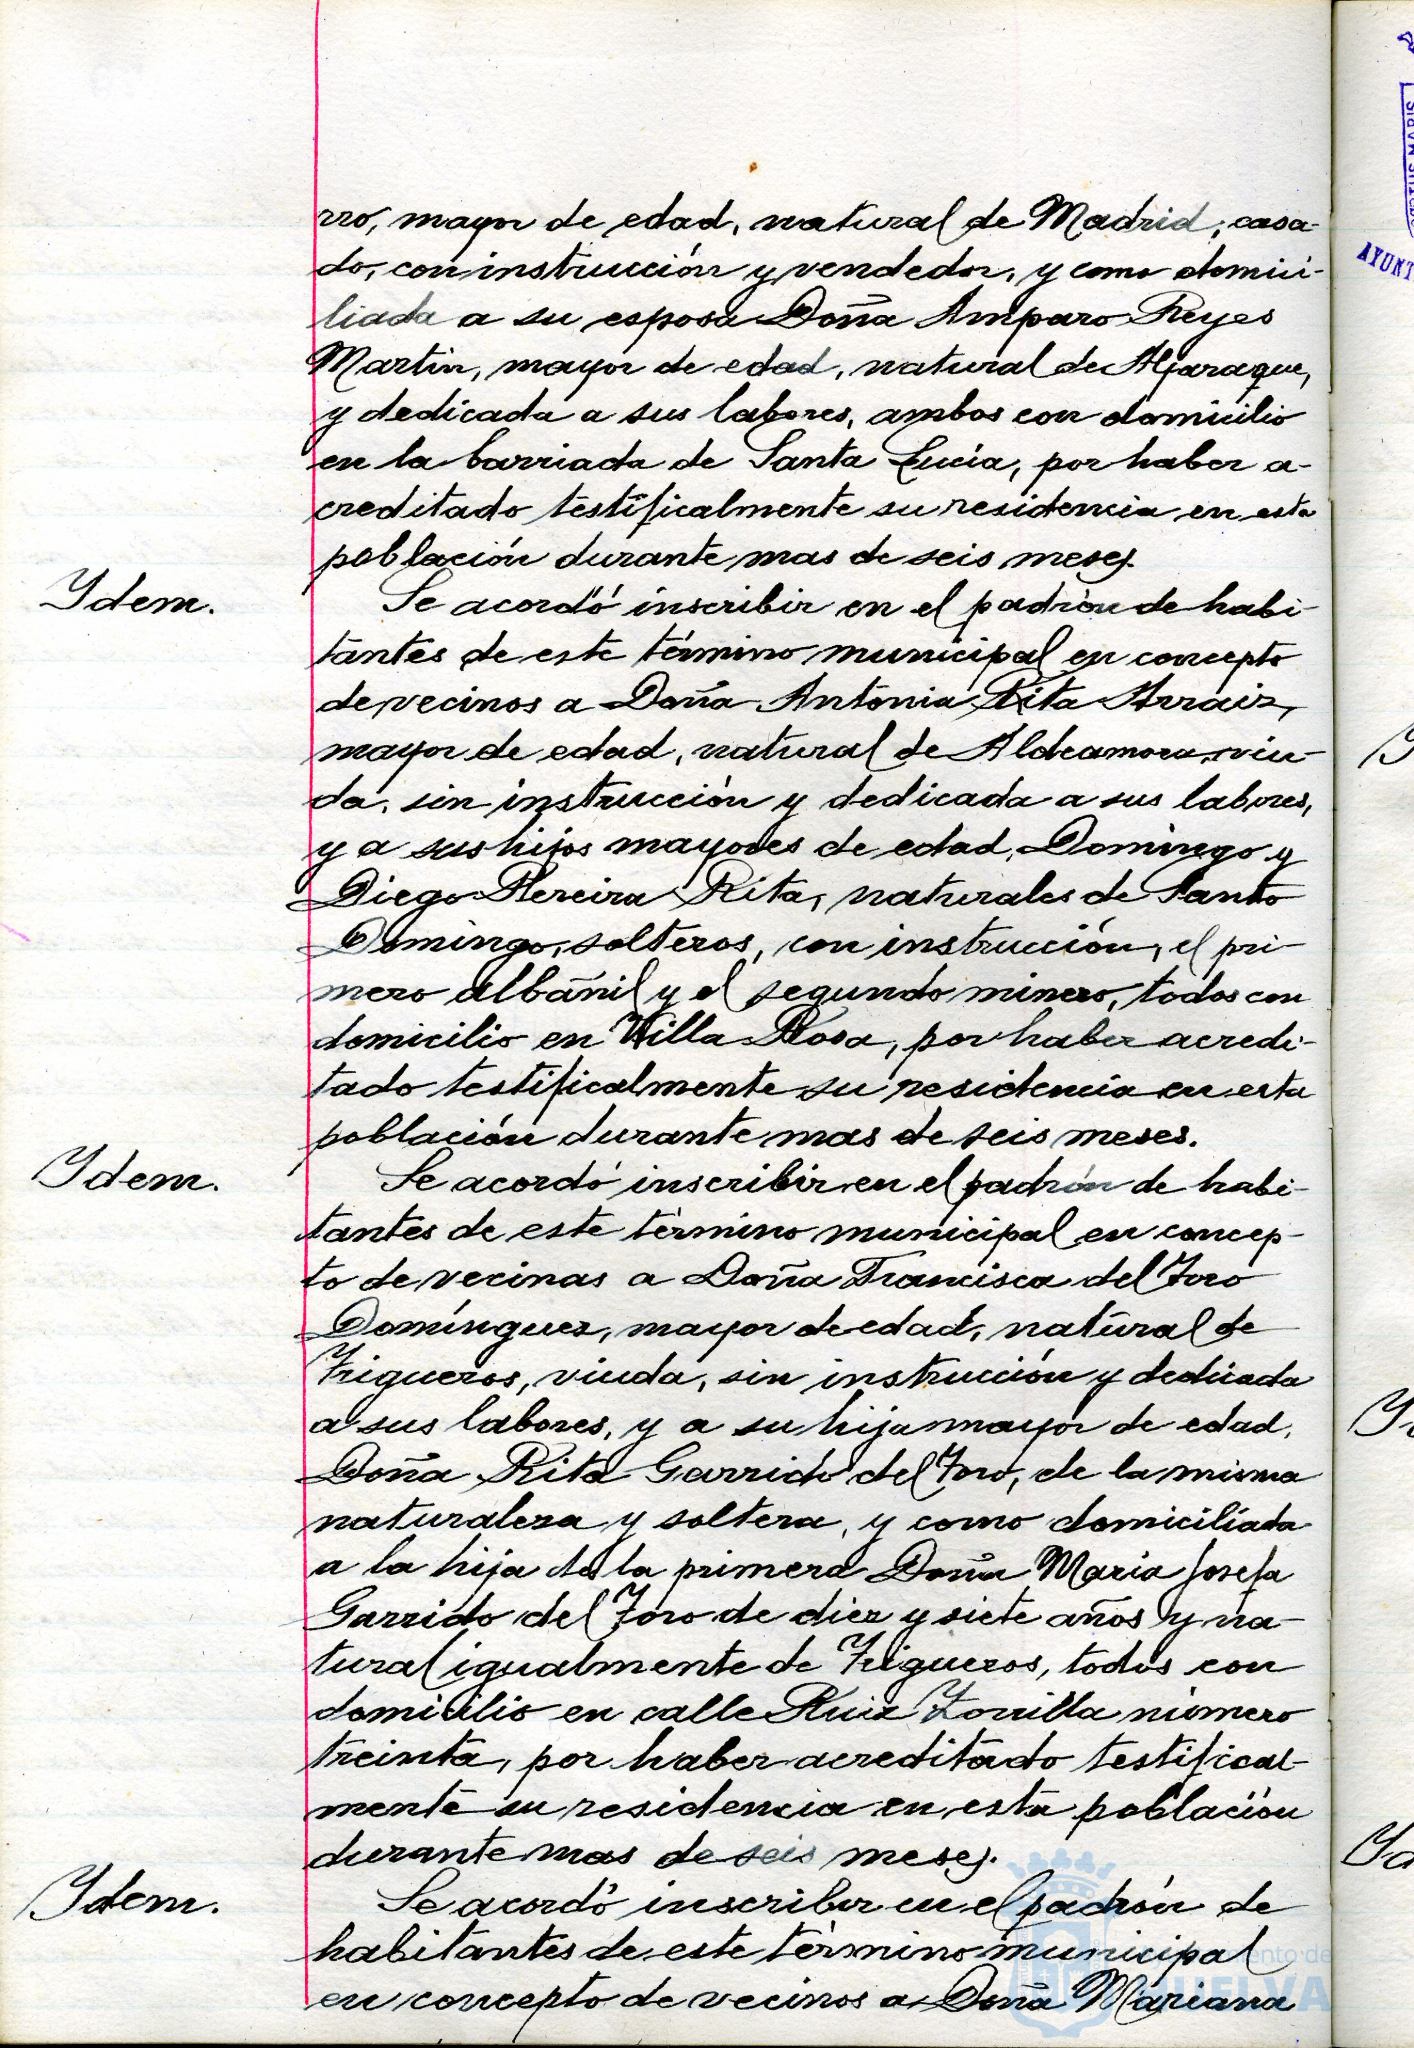 rro, mayor de edad, natural de Madrid, casa-
do, con instrucción y vendedor, y como domici-
liada a su esposa Doña Amparo Reyes
Martin, mayor de edad, natural de Aljaraque,
y dedicada a sus labores, ambos con domicilio
en la barriada de Santa Lucía, por haber a-
creditado testificalmente su residencia en esta
población durante mas de seis meses.
Ydem.
Se acordó inscribir en el padrón de habi-
tantes de este término municipal en concepto
de vecinos a Doña Antonia Rita Arraiz,
mayor de edad, natural de Aldeamora, viu-
da, sin instrucción y dedicada a sus labores,
y a sus hijos mayores de edad, Domingo y
Diego Pereira Rita, naturales de Santo
Domingo, solteros, con instrucción, el pri-
mero albañil y el segundo minero, todos con
domicilio en Villa Rosa, por haber acredi-
tado testificalmente su residencia en esta
población durante mas de seis meses.
Ydem.
Se acordó inscribir en el padrón de habi-
tantes de este término municipal en concep-
to de vecinas a Doña Francisca del Toro
Domínguez, mayor de edad, natural de
Trigueros, viuda, sin instrucción y dedicada
a sus labores, y a su hija mayor de edad,
Doña Rita Garrido del Toro, de la misma
naturaleza y soltera, y como domiciliada
a la hija de la primera Doña María Josefa
Garrido del Toro de diez y siete años y na-
tural igualmente de Trigueros, todos con
domicilio en calle Ruiz Zorrilla número
treinta, por haber acreditado testifical-
mente su residencia en esta población
durante mas de seis meses.
Ydem.
Se acordó inscribir en el padrón de
habitantes de este término municipal
en concepto de vecinos a Doña Mariana
AYUNT
HUELVA